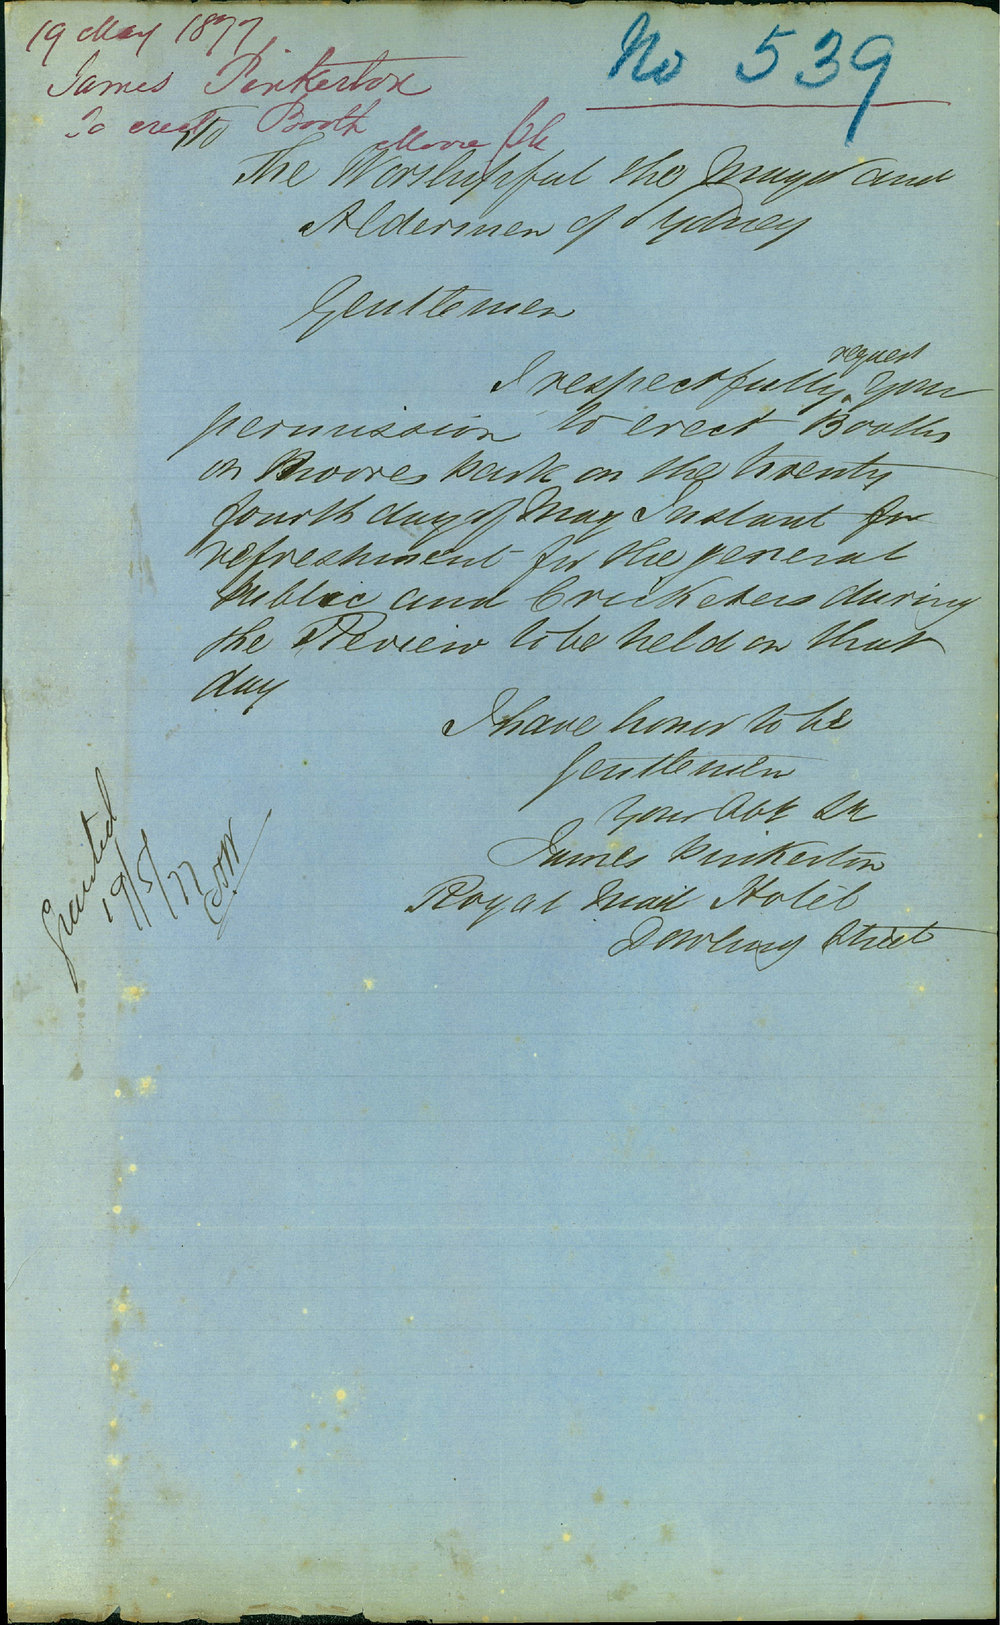 19 May 1877
No 539
James Pinkerton
To erect Booth
Moore Pk
To
The Worshipful the Mayor and
Aldermen of Sydney
Gentlemen
request
I respectfully your
permission to erect Booths
on Moores park on the twenty
fourth day of May Instant for
refreshment for the general
public and Cricketers during
the Review to be held on that
day
I have honor to be
Gentlemen
Your Obt
James Pinkerton
Royal Mail Hotel
Dowling Street
Granted
19/5/77